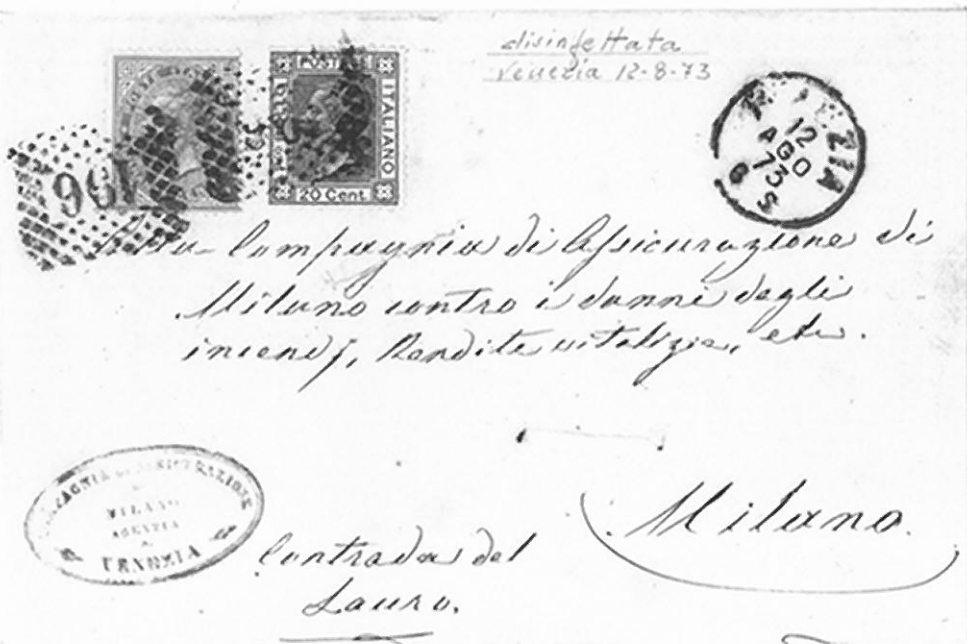 disinfettata
Venezia 12-8-73
POSTE
ITALIANO
20 Cent
196
VENEZIA
12
AGO
73
6 S
Compagnia di Assicurazione di
Milano contro i danni degli
incendj, Rendite vitalizie, etc.
Milano.
COMPAGNIA DI ASSICURAZIONE
MILANO
AGENZIA
VENEZIA
Contrada del
Lauro.